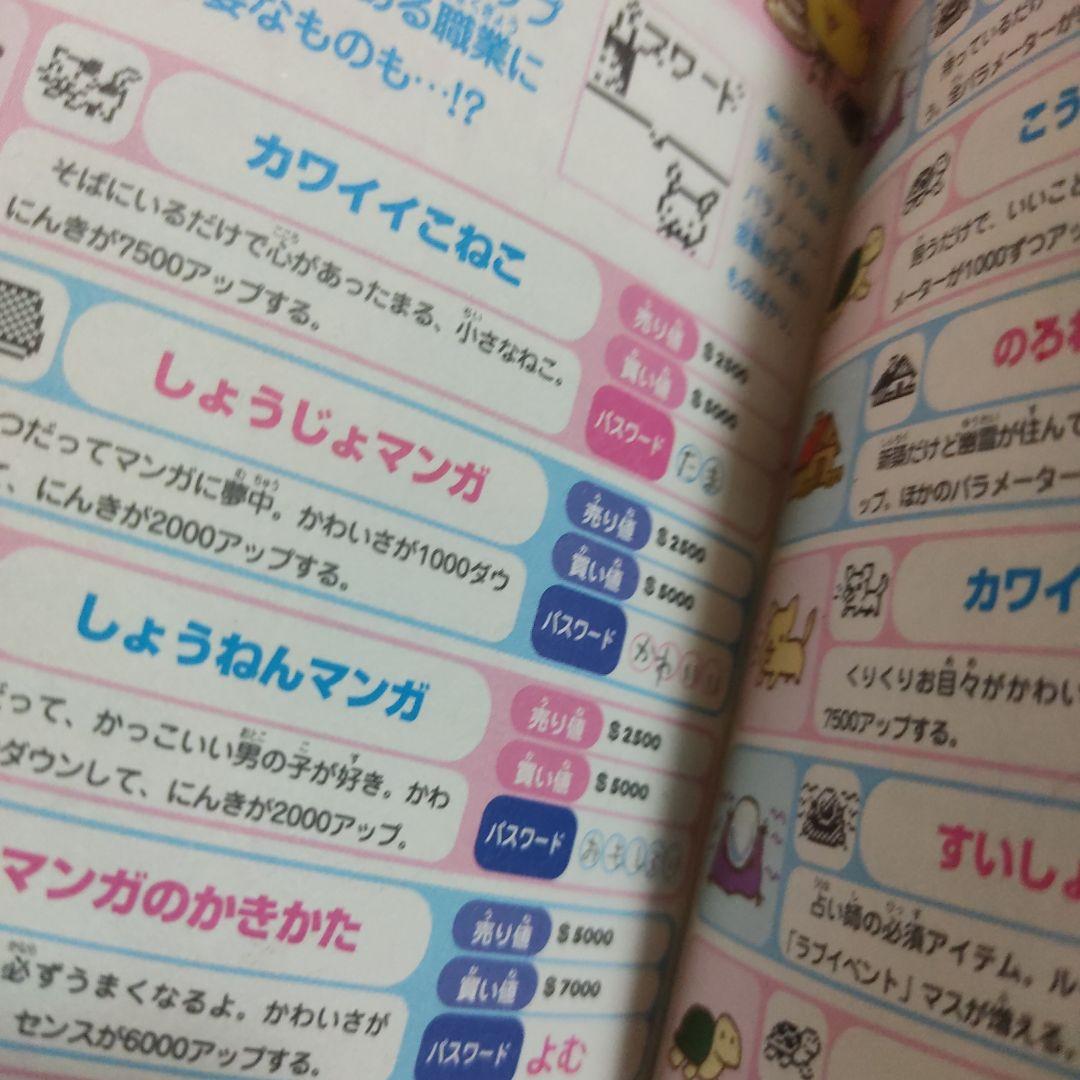 職業に
なものも…!?
パスワード
カワイイこねこ
そばにいるだけで心があったまる、小さなねこ。
にんきが7500アップする。
売り値 $2500
買い値 $5000
パスワード たま
しょうじょマンガ
つだってマンガに夢中。かわいさが1000ダウ
て、にんきが2000アップする。
売り値 $2500
買い値 $5000
パスワード
しょうねんマンガ
だって、かっこいい男の子が好き。かわ
ダウンして、にんきが2000アップ。
売り値 $2500
買い値 $5000
パスワード
マンガのかきかた
必ずうまくなるよ。かわいさが
センスが6000アップする。
売り値 $5000
買い値 $7000
パスワード よむ
こう
だけで、いいこと
メーターが1000ずつアッ
のろ
新築だけど幽霊が住んで
ップ。ほかのパラメーター
カワイ
くりくりお目々がかわい
7500アップする。
すいしょ
占い師の必須アイテム。ル
「ラブイベント」マスが増える。